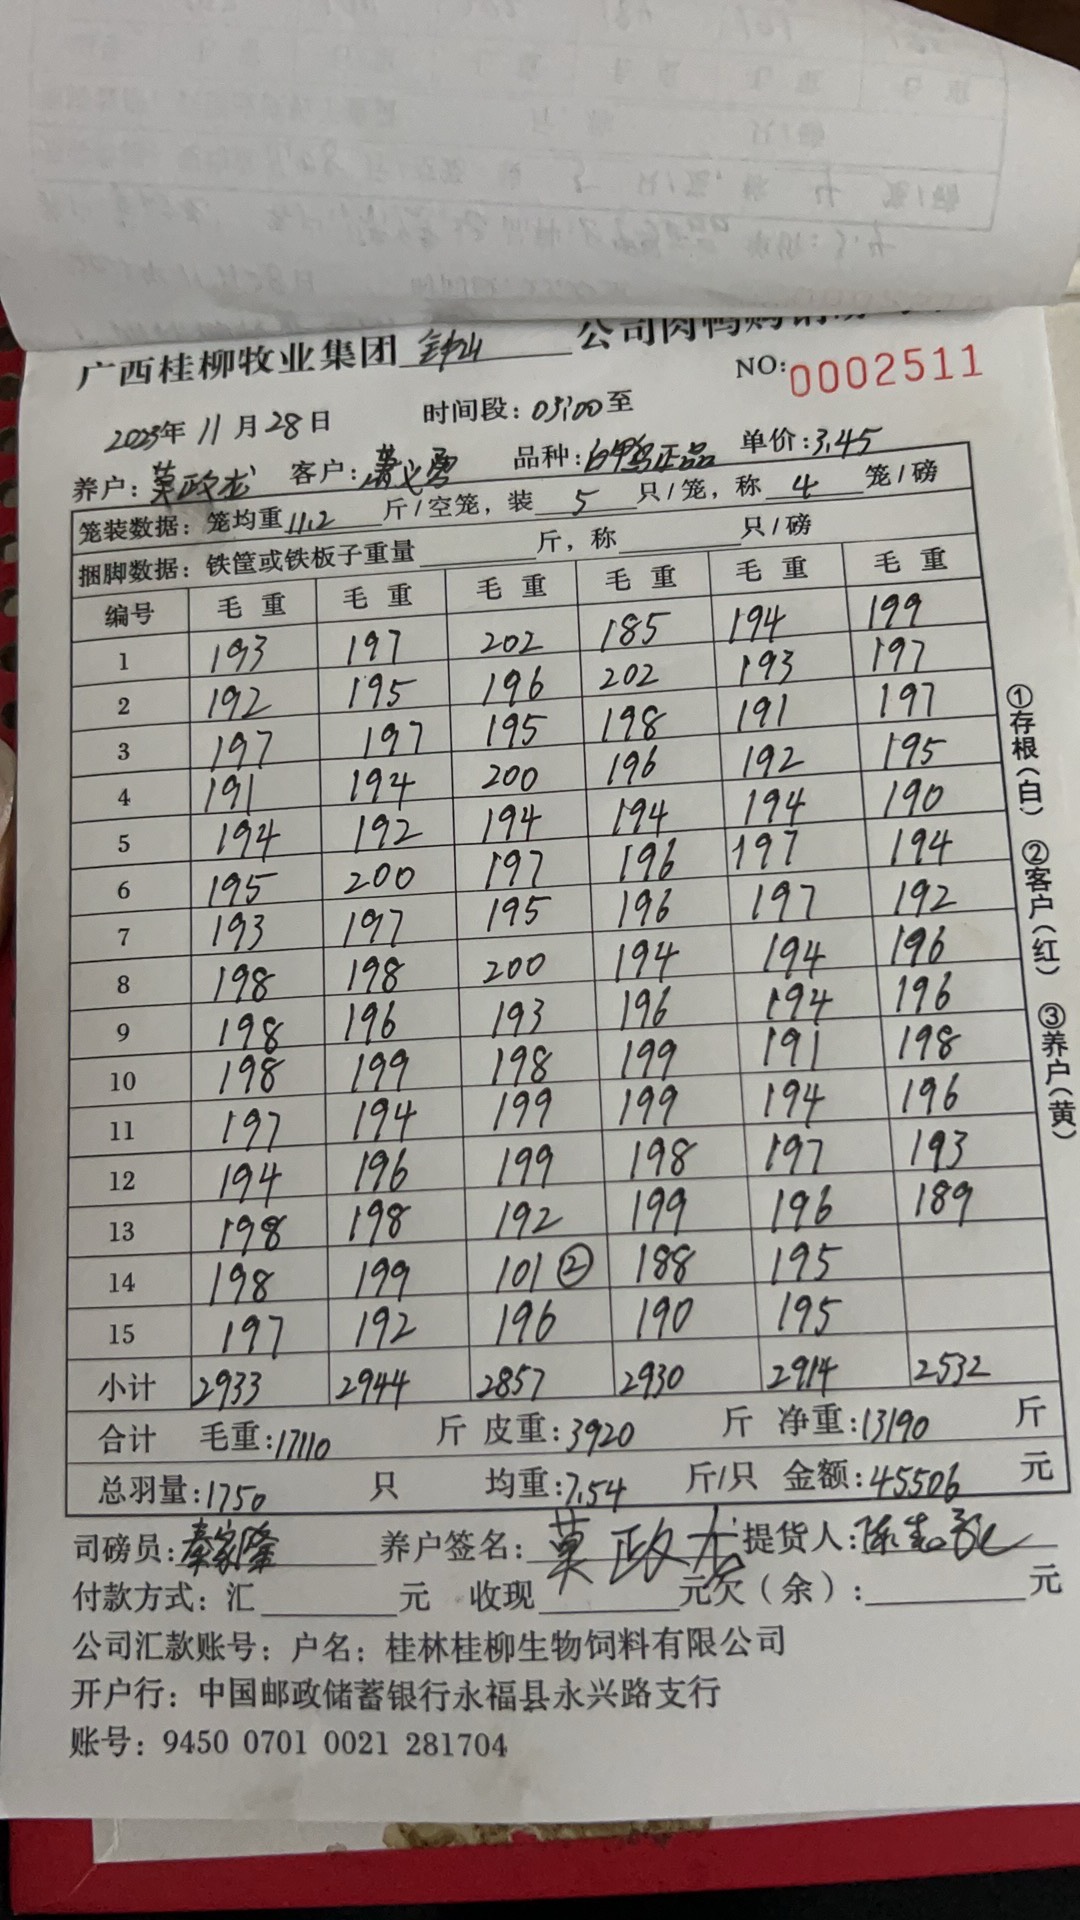 广西桂柳牧业集团 钟山 公司肉鸭购销
NO: 0002511
2023年 11月 28日 时间段: 03:00至
养户: 莫政龙 客户: 萧义勇 品种: 白鸭正品 单价: 3.45
笼装数据: 笼均重 11.2 斤/空笼, 装 5 只/笼, 称 4 笼/磅
捆脚数据: 铁筐或铁板子重量 斤, 称 只/磅
编号 毛重 毛重 毛重 毛重 毛重 毛重
1 193 197 202 185 194 199
2 192 195 196 202 193 197
3 197 197 195 198 191 197
4 191 194 200 196 192 195
5 194 192 194 194 194 190
6 195 200 197 196 197 194
7 193 197 195 196 197 192
8 198 198 200 194 194 196
9 198 196 193 196 194 196
10 198 199 198 199 191 198
11 197 194 199 199 194 196
12 194 196 199 198 197 193
13 198 198 192 199 196 189
14 198 199 101② 188 195
15 197 192 196 190 195
小计 2933 2944 2857 2930 2914 2532
合计 毛重: 17110 斤 皮重: 3920 斤 净重: 13190 斤
总羽量: 1750 只 均重: 7.54 斤/只 金额: 45506 元
司磅员: 秦家隆 养户签名: 莫政龙 提货人:
付款方式: 汇 元 收现 元欠(余): 元
公司汇款账号: 户名: 桂林桂柳生物饲料有限公司
开户行: 中国邮政储蓄银行永福县永兴路支行
账号: 9450 0701 0021 281704
①存根(白) ②客户(红) ③养户(黄)